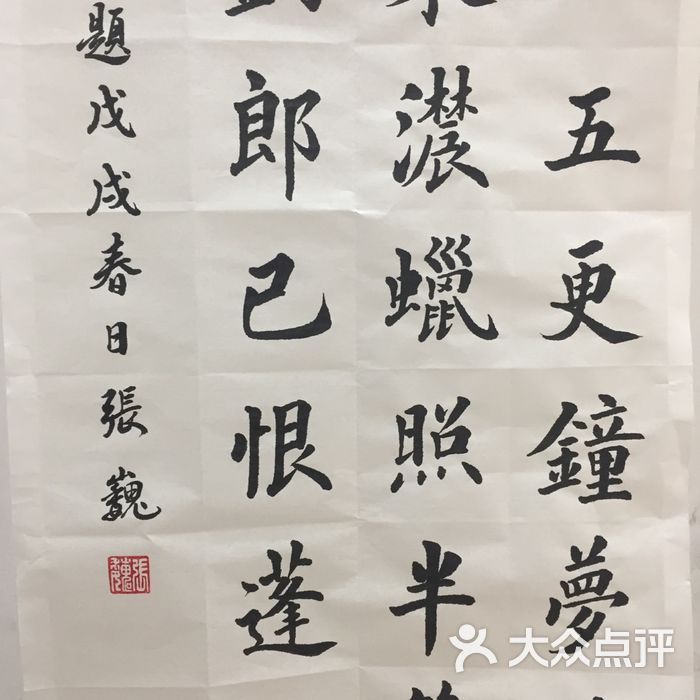 五更鐘夢
濃蠟照半
郎已恨蓬
題戊戌春日張巍
張巍
大众点评